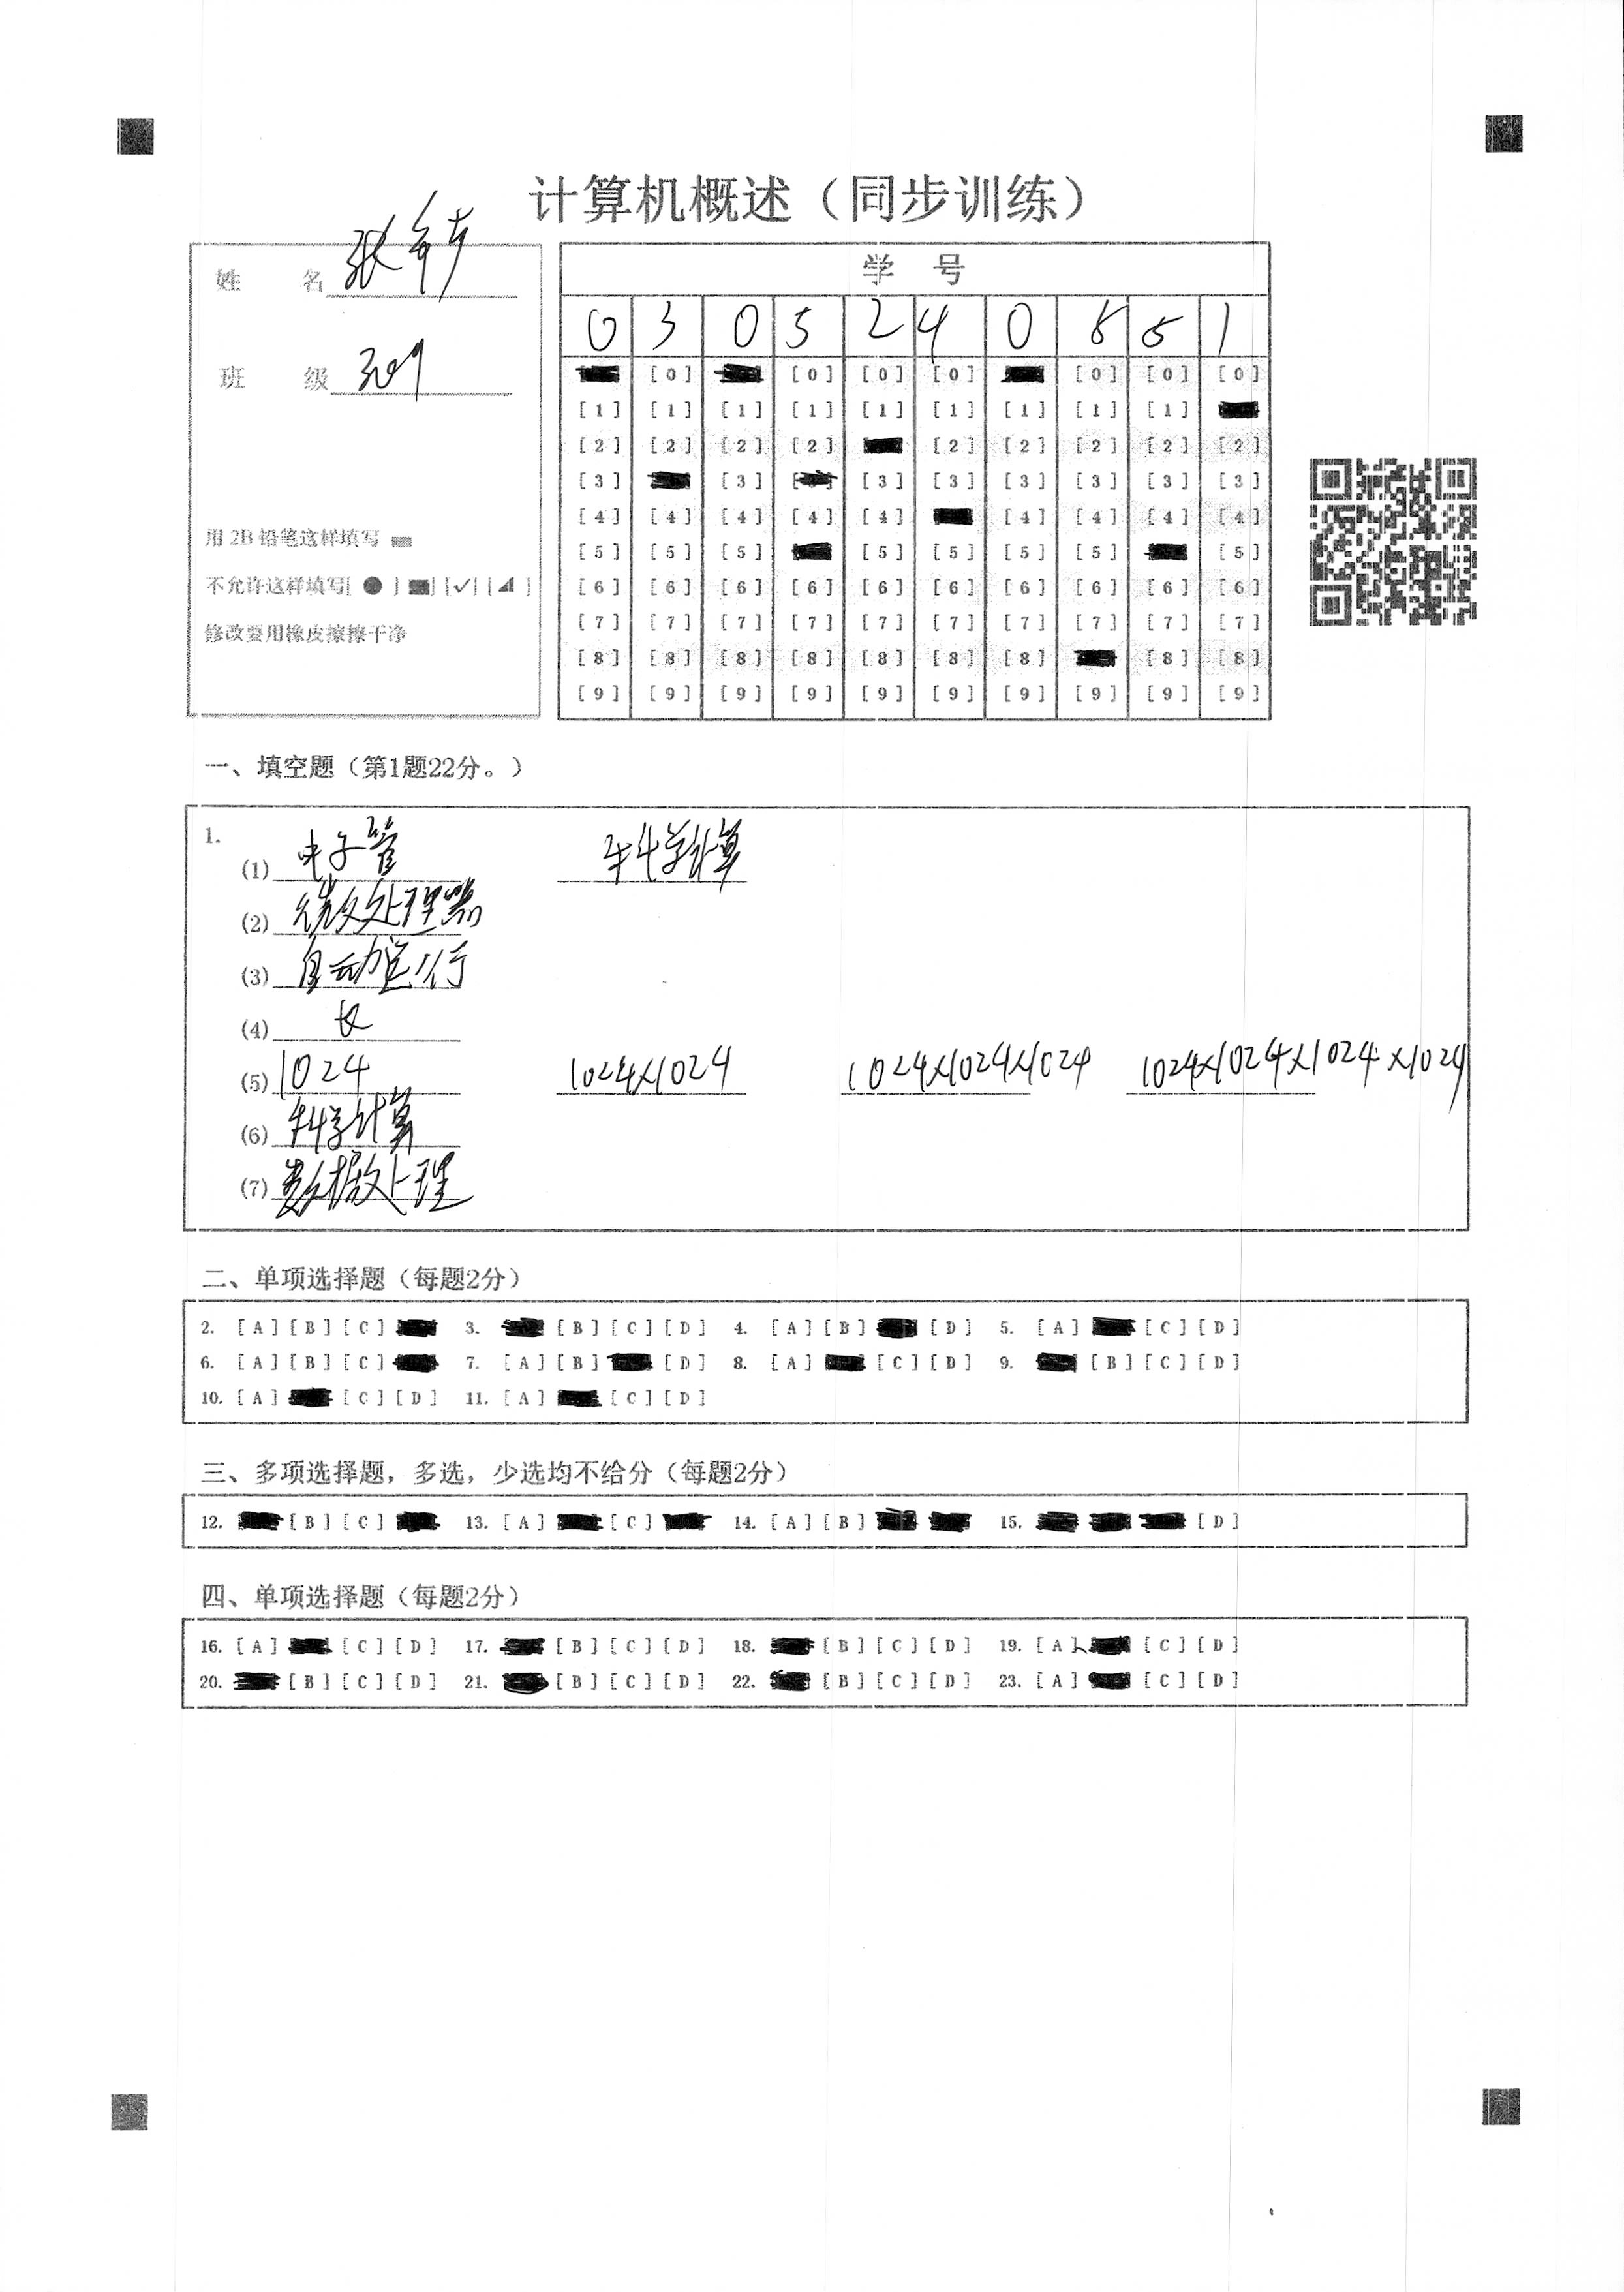 计算机概述（同步训练）
姓 名 张
班 级 309
用 2B 铅笔这样填写
不允许这样填写[ ● ] [■] [✓] [◢ ]
修改要用橡皮擦擦干净
学 号
0 3 0 5 2 4 0 8 5 1
[0] [0] [0] [0] [0] [0]
[1] [1] [1] [1] [1] [1] [1] [1] [1]
[2] [2] [2] [2] [2] [2] [2] [2] [2]
[3] [3] [3] [3] [3] [3] [3] [3]
[4] [4] [4] [4] [4] [4] [4] [4] [4]
[5] [5] [5] [5] [5] [5] [5] [5]
[6] [6] [6] [6] [6] [6] [6] [6] [6] [6]
[7] [7] [7] [7] [7] [7] [7] [7] [7] [7]
[8] [8] [8] [8] [8] [8] [8] [8] [8]
[9] [9] [9] [9] [9] [9] [9] [9] [9] [9]
一、填空题（第1题22分。）
1.
(1) 电子管 科学计算
(2) 微处理器
(3) 自动运行
(4) 长
(5) 1024 1024×1024 1024×1024×1024 1024×1024×1024×1024
(6) 科学计算
(7) 数据处理
二、单项选择题（每题2分）
2. [A] [B] [C] 3. [B] [C] [D] 4. [A] [B] [D] 5. [A] [C] [D]
6. [A] [B] [C] 7. [A] [B] [D] 8. [A] [C] [D] 9. [B] [C] [D]
10. [A] [C] [D] 11. [A] [C] [D]
三、多项选择题，多选，少选均不给分（每题2分）
12. [B] [C] 13. [A] [C] 14. [A] [B] 15. [D]
四、单项选择题（每题2分）
16. [A] [C] [D] 17. [B] [C] [D] 18. [B] [C] [D] 19. [A] [C] [D]
20. [B] [C] [D] 21. [B] [C] [D] 22. [B] [C] [D] 23. [A] [C] [D]